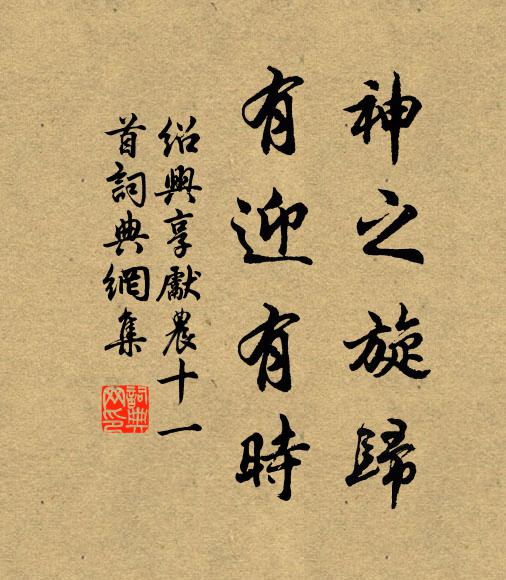 神之旋歸
有迎有時
紹興享獻農十一
首詞典網集
詞典網印